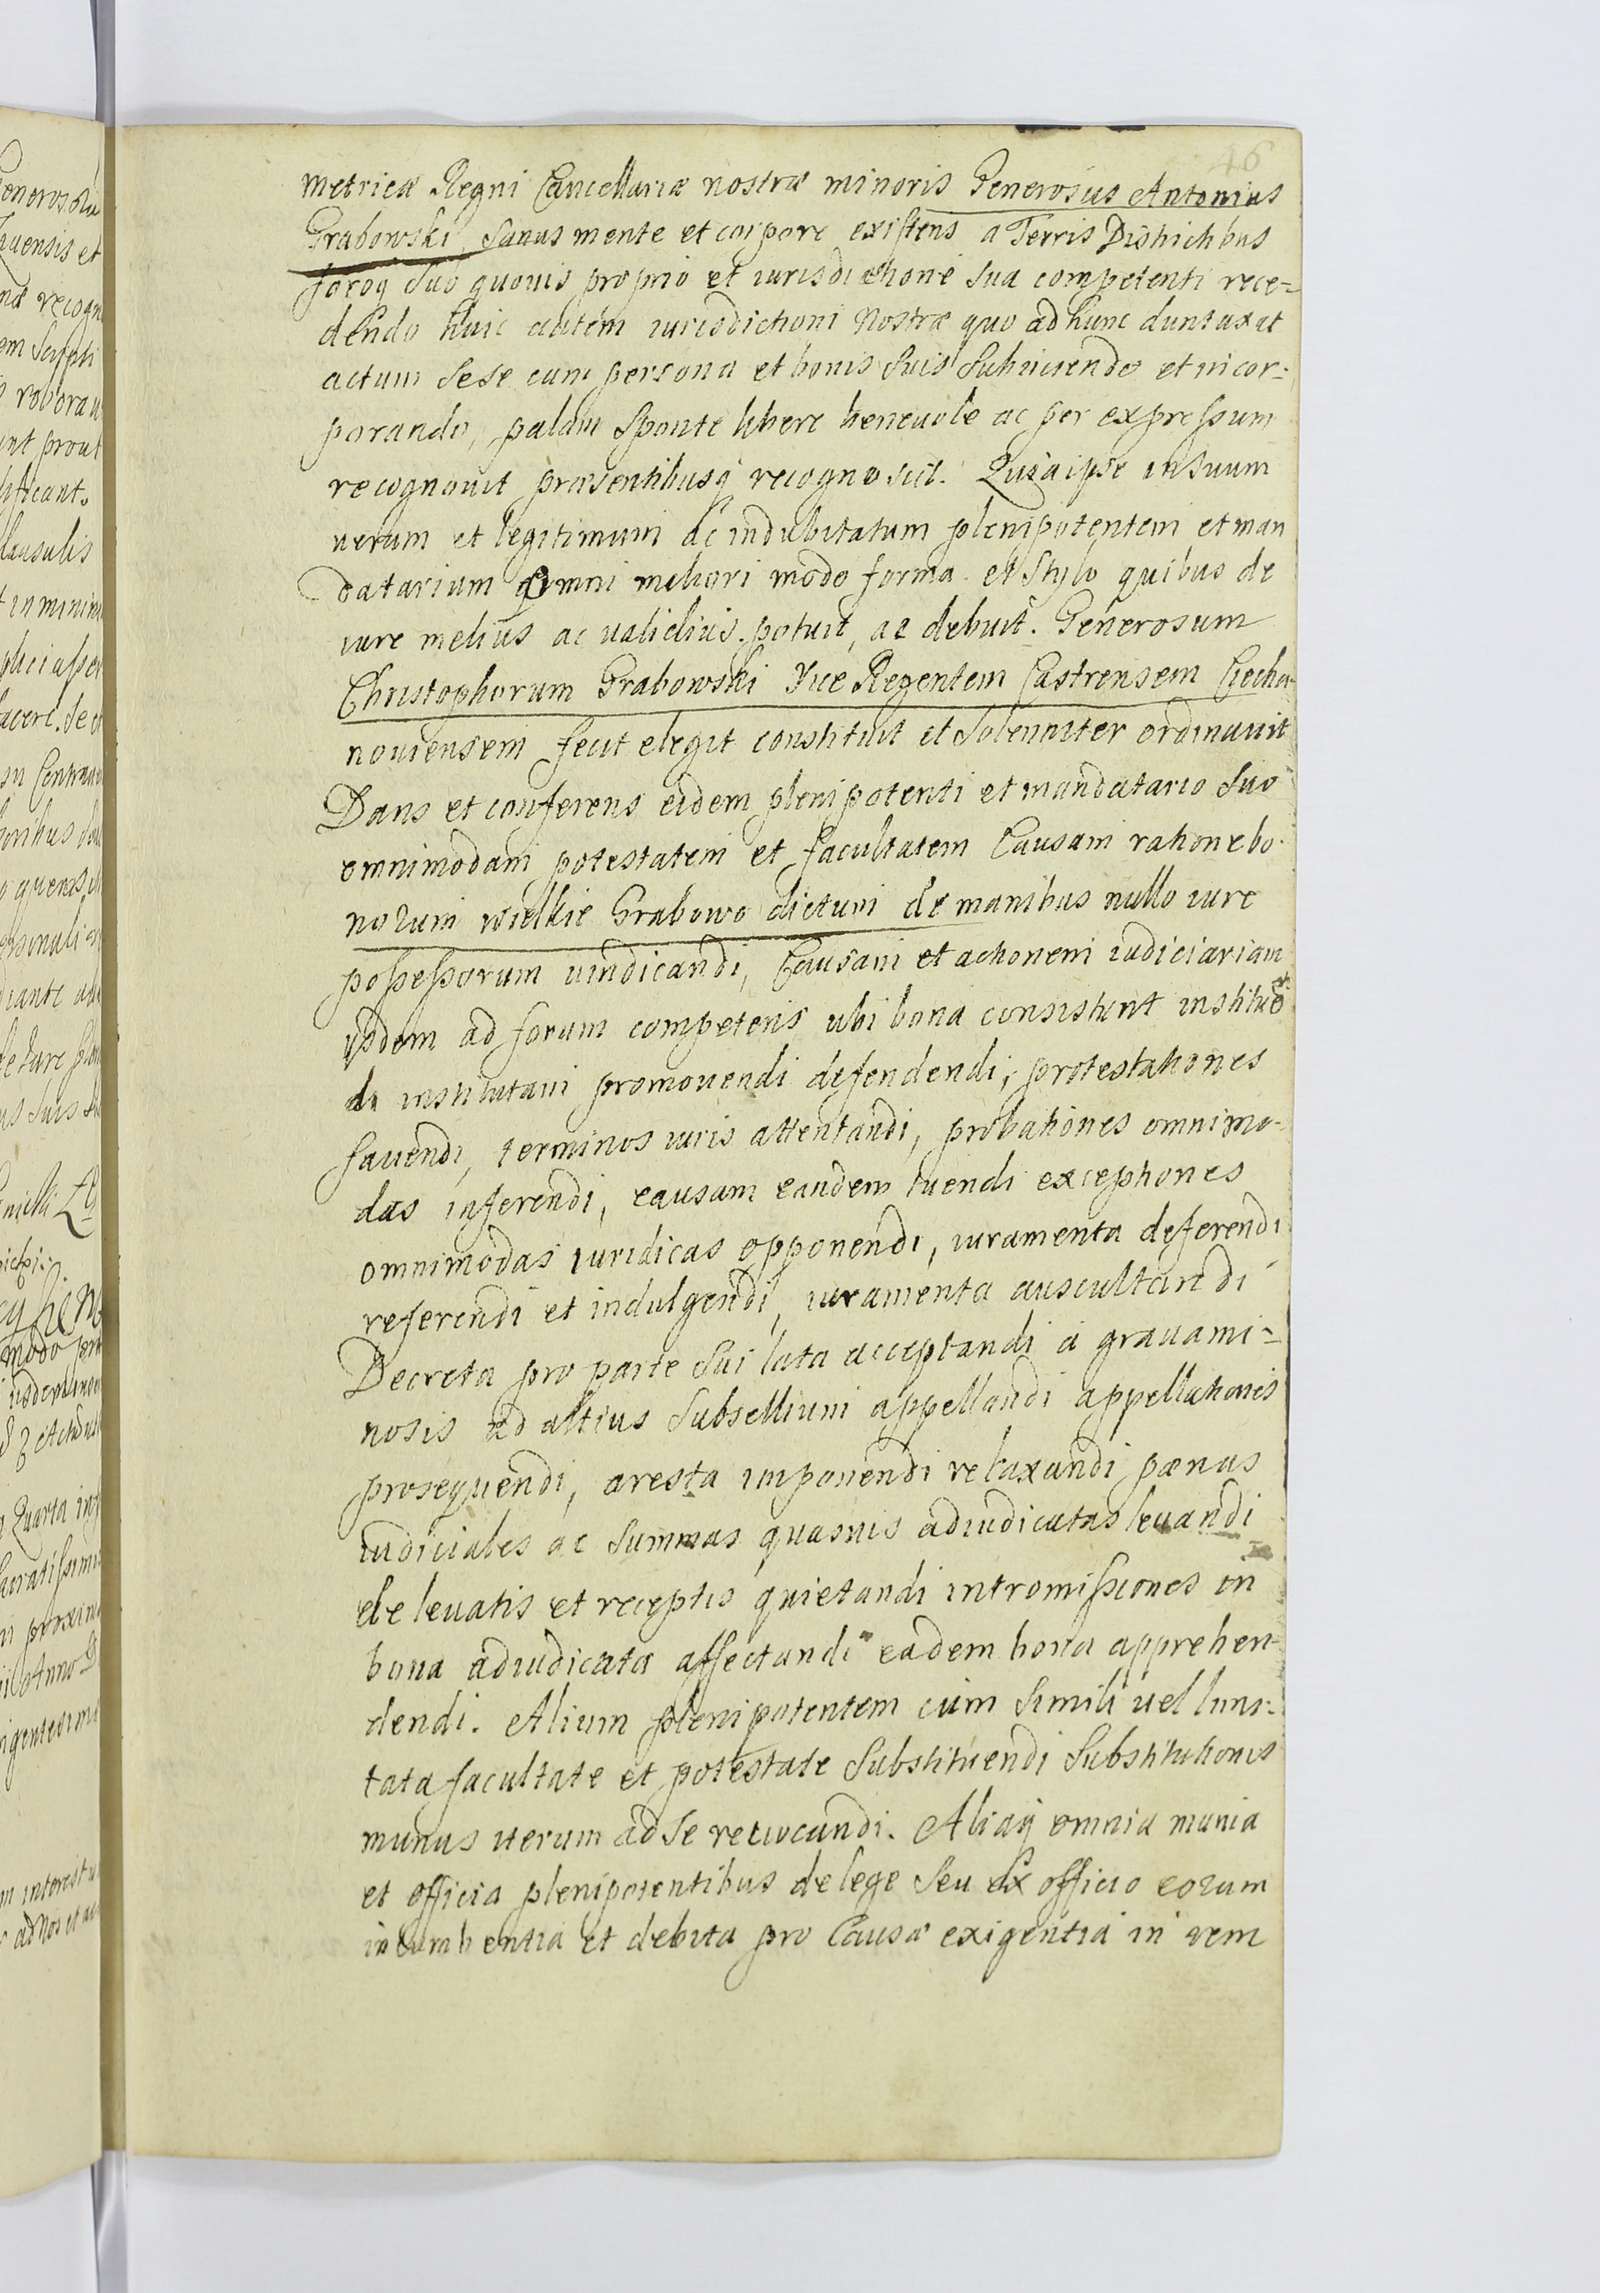 46
metricæ Regni Cancellariæ nostræ minoris Generosus Antonius
Grabowski, Sanus mente et corpore existens a Terris Districtibus
foroq suo quouis proprio et iurisdictione sua competenti rece=
dendo huic autem iurisdictioni Nostræ quo ad hunc duntaxat
actum Sese cum persona et bonis Suis Subiiciendo et incor=
porando, palam Sponte libere beneuole ac per expressum
recognouit præsentibusq recognoscit. Quia ipse in Suum
uerum et legitimum ac indubitatum plenipotentem et man
datarium omni meliori modo forma et Stylo quibus de
iure melius ac ualidius potuit, ac debuit. Generosum
Christophorum Grabowski Vice Regentem Castrensem Ciecha-
nouiensem fecit elegit constituit et Solenniter ordinauit
Dans et conferens eidem plenipotenti et mandatario Suo
omnimodam potestatem et facultatem Causam ratione bo-
norum wielkie Grabowo dictum de manibus nullo iure
possessorum uindicandi, Causam et actionem iudiciariam
ibidem ad forum competens ubi bona consistunt instituen
di institutam promouendi defendendi, protestationes
fauendi, terminos iuris attentandi, probationes omnimo-
das inferendi, causam eandem tuendi exceptiones
omnimodas iuridicas opponendi, iuramenta deferendi
referendi et indulgendi, iuramenta auscultandi
Decreta pro parte Sui lata acceptandi a grauami=
nosis ad altius Subsellium appellandi appellationes
prosequendi, aresta imponendi relaxandi pænas
iudiciales ac Summas quasuis adiudicatas leuandi
de leuatis et receptis quietandi intromissiones in
bona adiudicata affectandi eadem bona apprehen-
dendi. Alium plenipotentem cum Simili uel limi-
tata facultate et potestate Substituendi Substitutionis
munus iterum ad Se reuocandi. Aliaq omnia munia
et officia plenipotentibus de lege Seu ex officio eorum
incumbentia et debita pro Causæ exigentia in rem